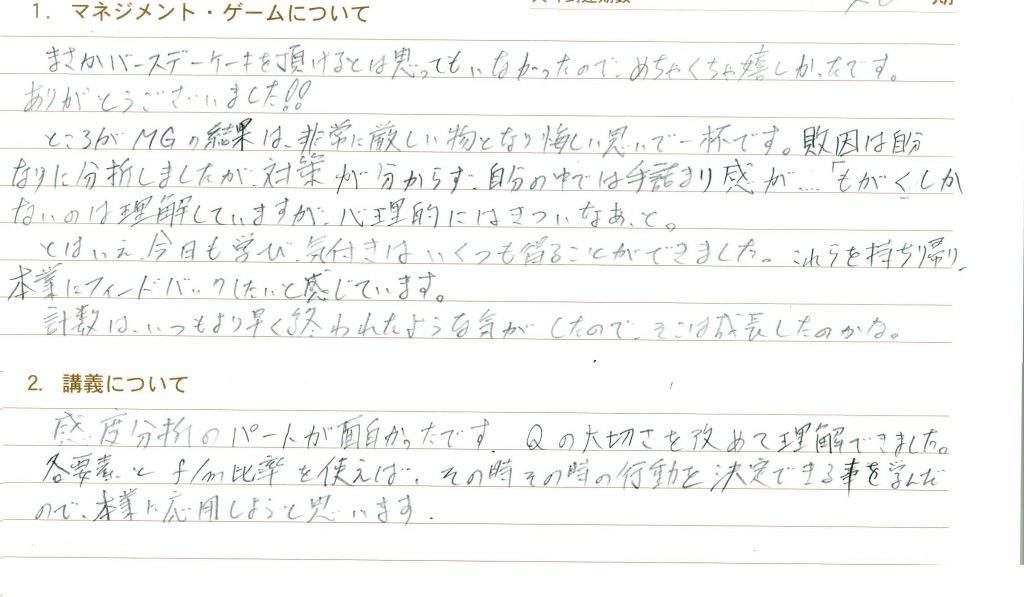 1. マネジメント・ゲームについて
期
まさかバースデーケーキを頂けるとは思ってもいなかったので、めちゃくちゃ嬉しかったです。
ありがとうございました!!
ところがMGの結果は、非常に厳しい物となり悔しい思いで一杯です。敗因は自分
なりに分析しましたが、対策が分からず、自分の中では手詰まり感が…「もがくしか
ないのは理解していますが、心理的にはきついなあ、と。
とはいえ、今日も学び、気付きはいくつも得ることができました。これらを持ち帰り、
本業にフィードバックしたいと感じています。
計数は、いつもより早く終われたような気がしたので、そこは成長したのかな。
2. 講義について
感度分析のパートが面白かったです。Qの大切さを改めて理解できました。
各要素と f/m比率を使えば、その時その時の行動を決定できる事を学んだ
ので、本業に応用しようと思います.